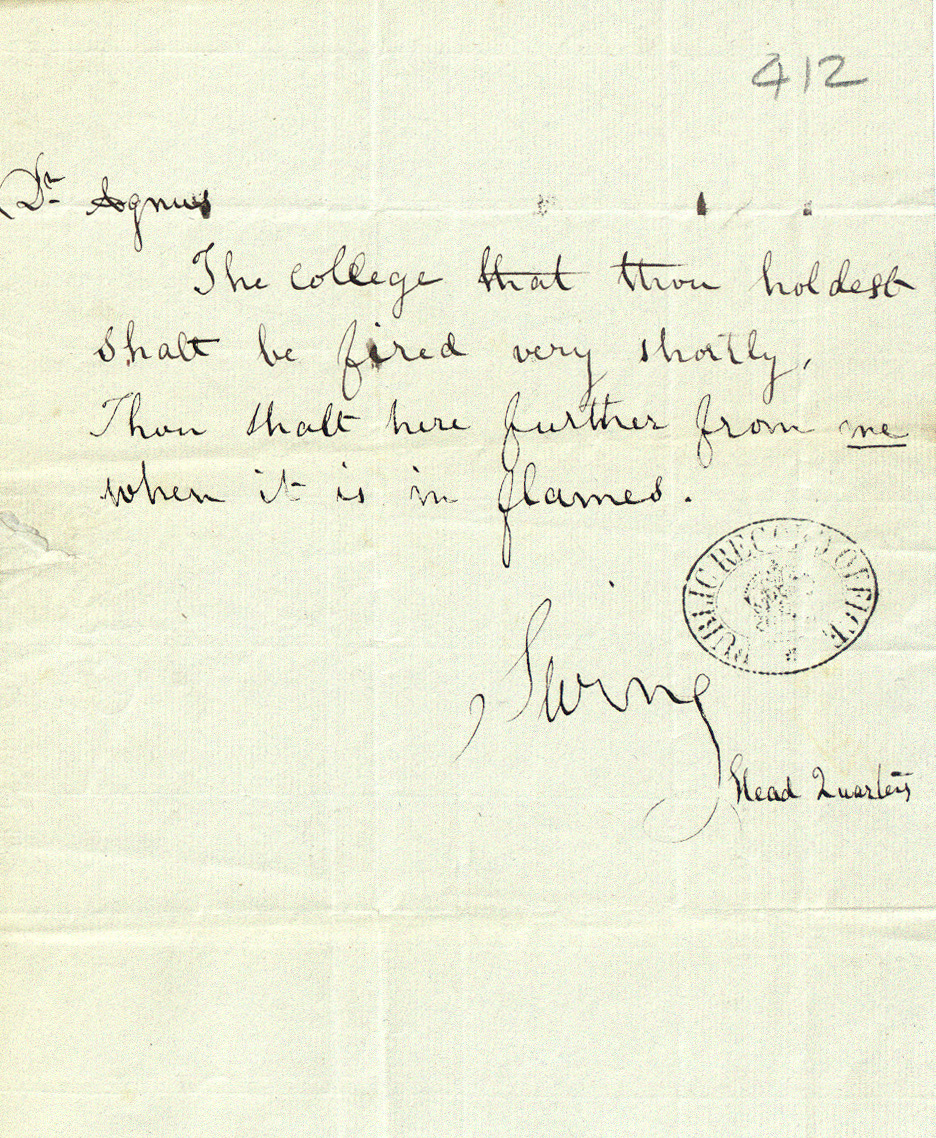 412
Dr Agnus
The college that thou holdest
shalt be fired very shortly,
Thou shalt here further from me
when it is in flames.
PUBLIC RECORD OFFICE
Swing
Head Quarters